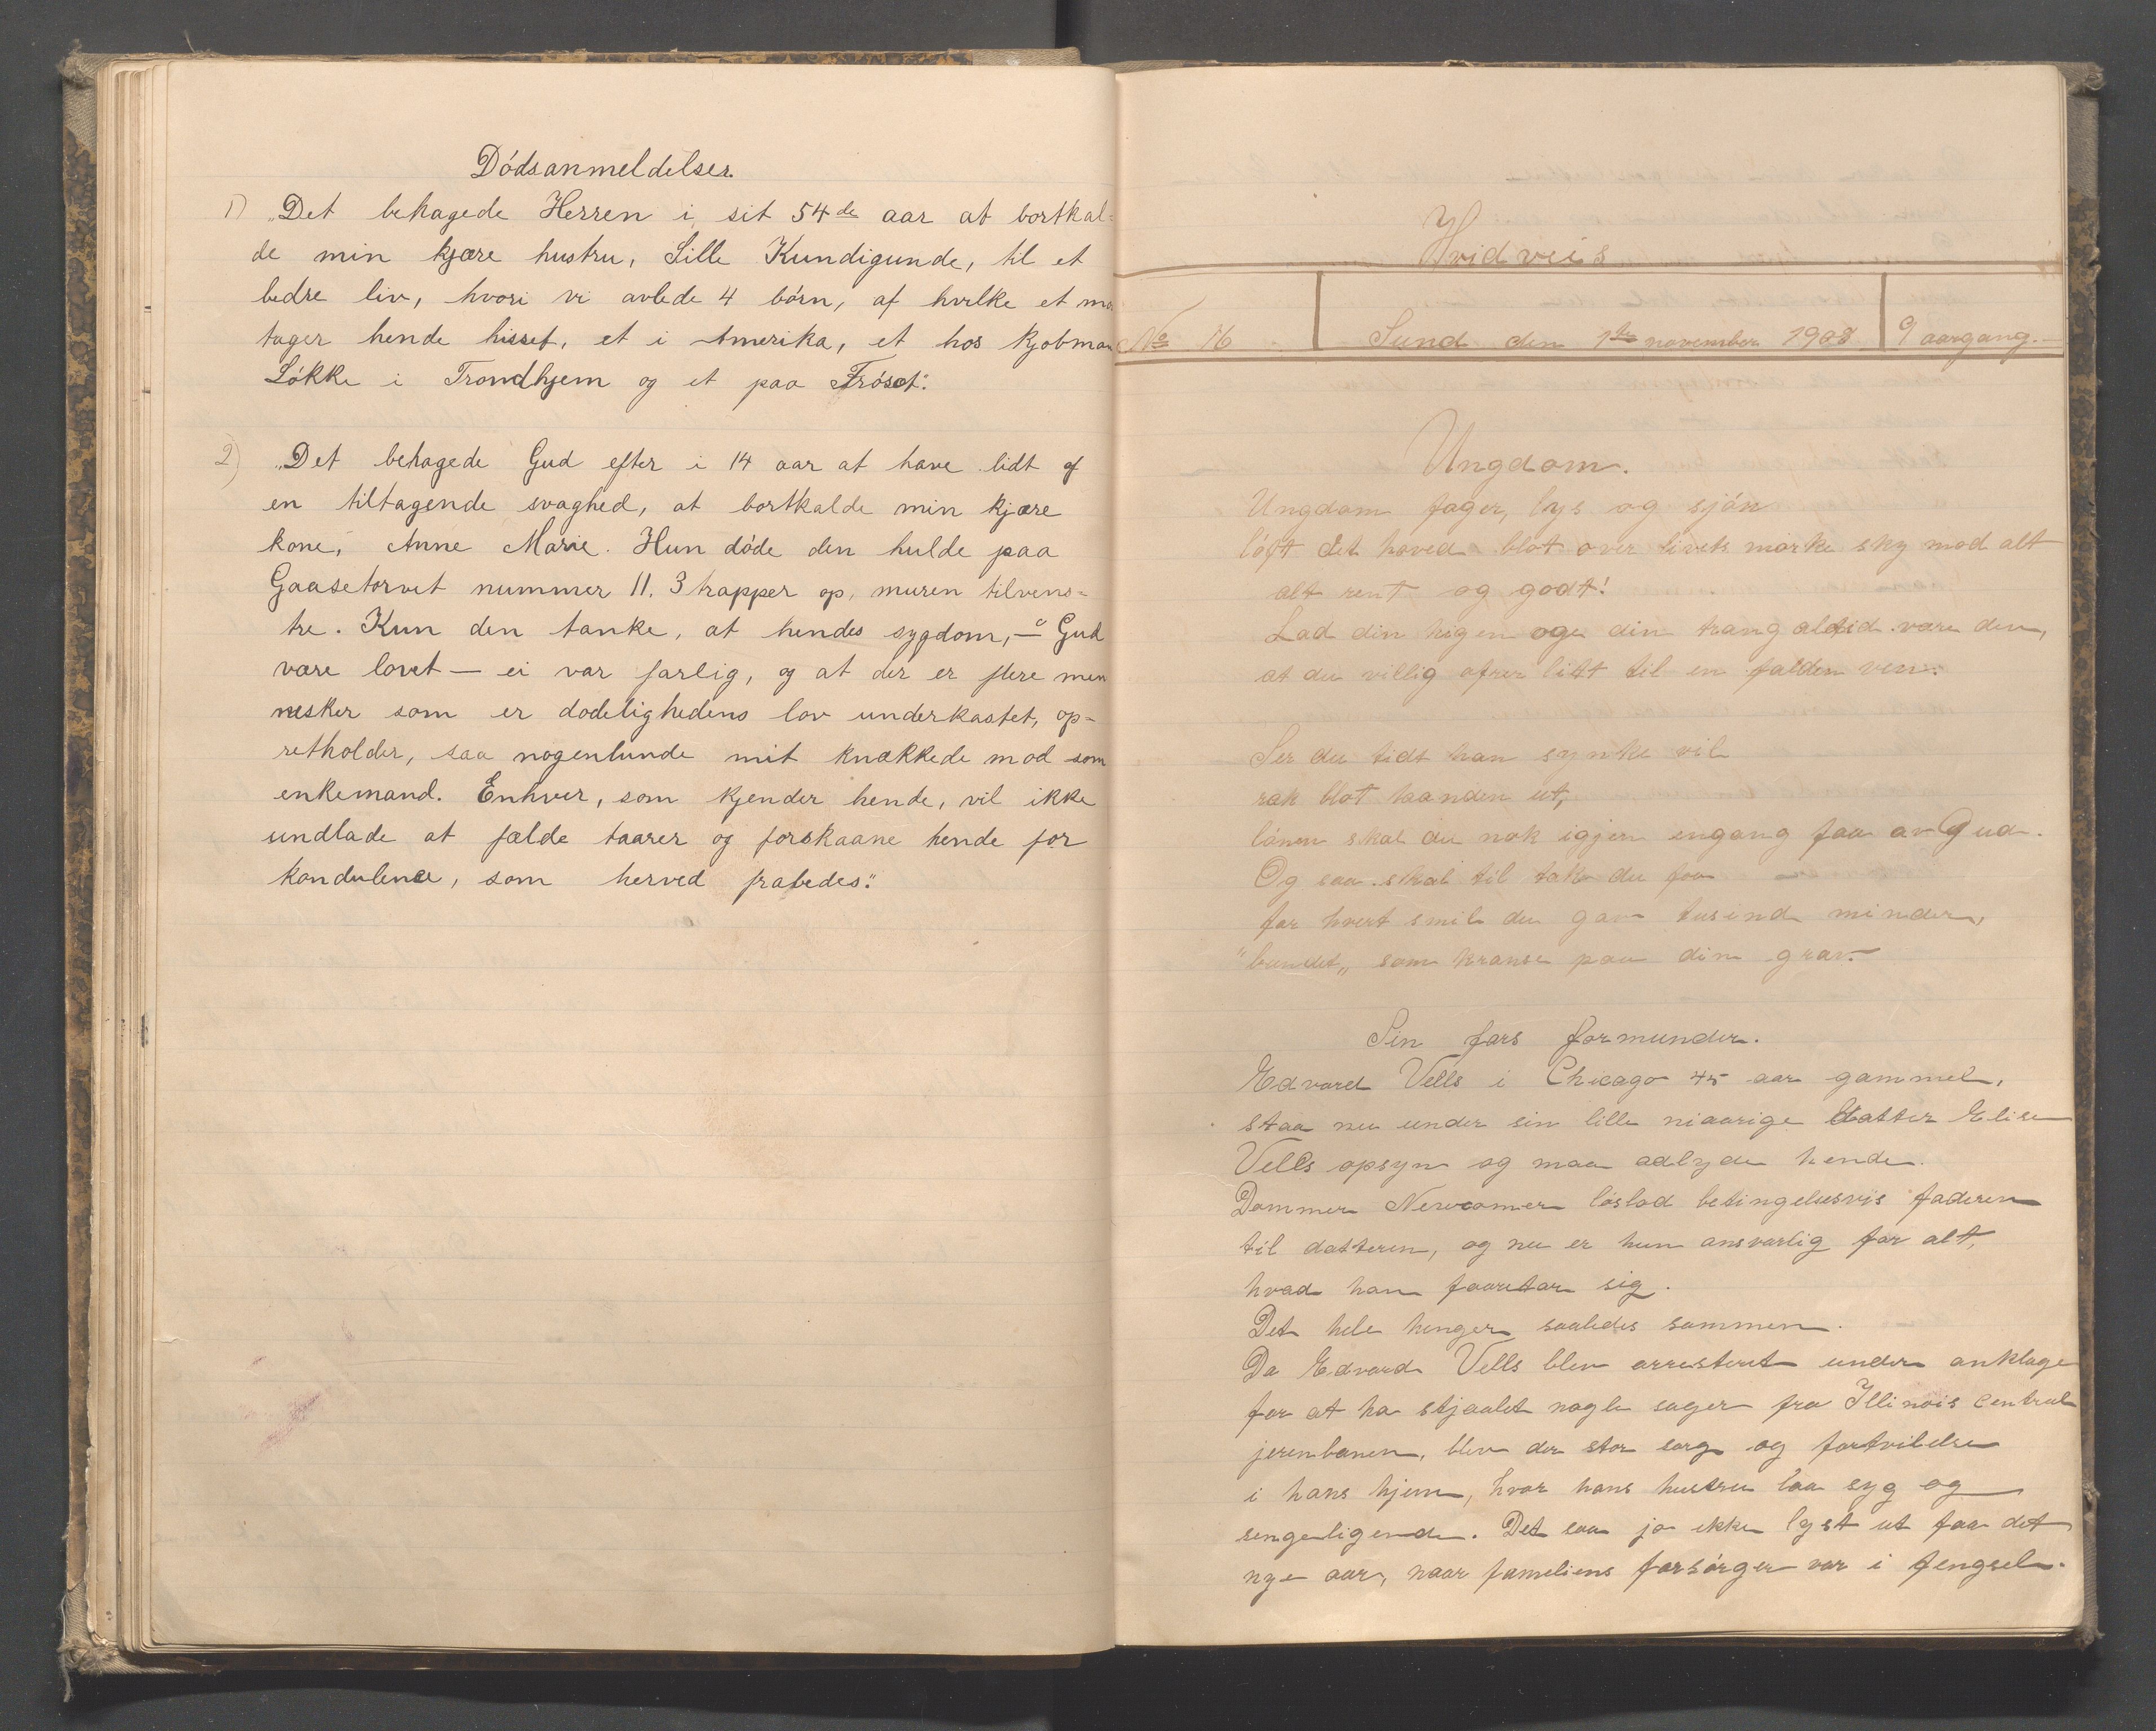 Dödsanmeldelser.
1) „Det behagede Herren i sit 54de aar at bortkal=
de min kjære hustru, Sille Kundigunde, til et
bedre liv, hvori vi avlede 4 börn, af hvilke et mo
tager hende hisset, et i Amerika, et hos kjobman
Lökke i Trondhjem og et paa Fröset."
2) „Det behagede Gud efter i 14 aar at have lidt af
en tiltagende svaghed, at bortkalde min kjære
kone, Anne Marie. Hun döde den hulde paa
Gaasetorvet nummer 11. 3 trapper op, muren tilvens=
tre. Kun den tanke, at hendes sygdom, — Gud
være lovet — ei var farlig, og at der er flere men
nesker som er dodelighedens lov underkastet, op=
retholder, saa nogenlunde mit knækkede mod som
enkemand. Enhver, som kjender hende, vil ikke
undlade at fælde taarer og forskaane hende for
kondulence, som herved frabedes."
Hvidveis
No 16 Sund den 1ste november 1908 9 aargang.
Ungdom.
Ungdom fager, lys og sjön
löft det hoved blot over livets mörke sky mod alt
alt rent og godt!
Lad din higen og din trang altid være den,
at du villig ofrer lidt til en falden ven.
Ser du tidt han synke vil
ræk blot haanden ut,
lönen skal du nok igjen engang faa av Gud.
Og saa skal til tak du faa
for hvert smil du gav tusind minder,
"bundet„ som kranse paa din grav.
Sin fars formunder.
Edvard Vells i Chicago 45 aar gammel,
staa nu under sin lille niaarige datter Elise
Vells opsyn og maa adlyde hende.
Dommer Newcomer löslod betingelsesvis faderen
til datteren, og nu er hun ansvarlig for alt,
hvad han faaretar sig.
Det hele henger saaledes sammen.
Da Edvard Vells blev arresteret under anklage
for at ha stjaalet nogle sager fra Illinois central
jerenbanen, blev der stor sorg og fortvilelse
i hans hjem, hvor hans hustru laa syg og
sengeligende. Det saa jo ikke lyst ut faa det
nye aar, naar fameliens forsörger var i fengsel.